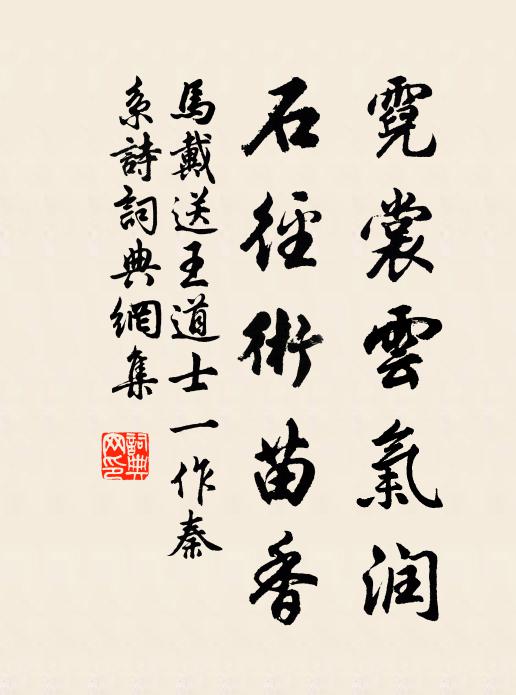 霓裳雲氣润
石徑術苗香
馬戴送王道士一作秦
系詩詞典網集
詞典
网印